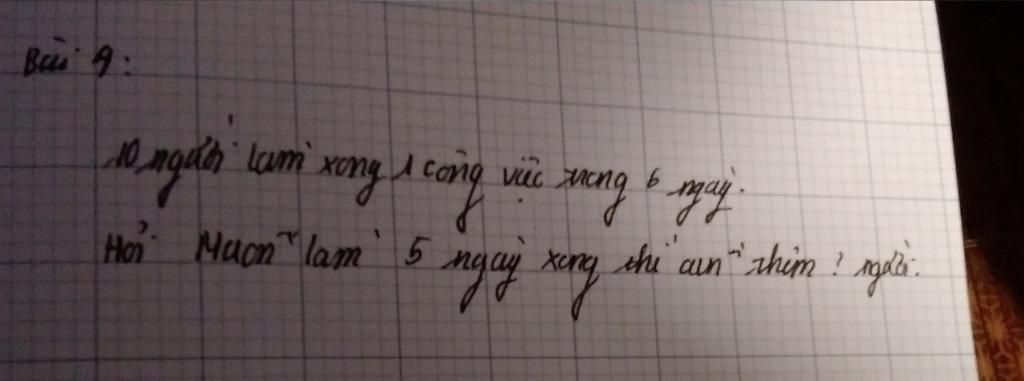 Bài 9:
10 người làm xong 1 công việc trong 6 ngày.
Hỏi Muốn làm 5 ngày xong thì cần thêm ? người.